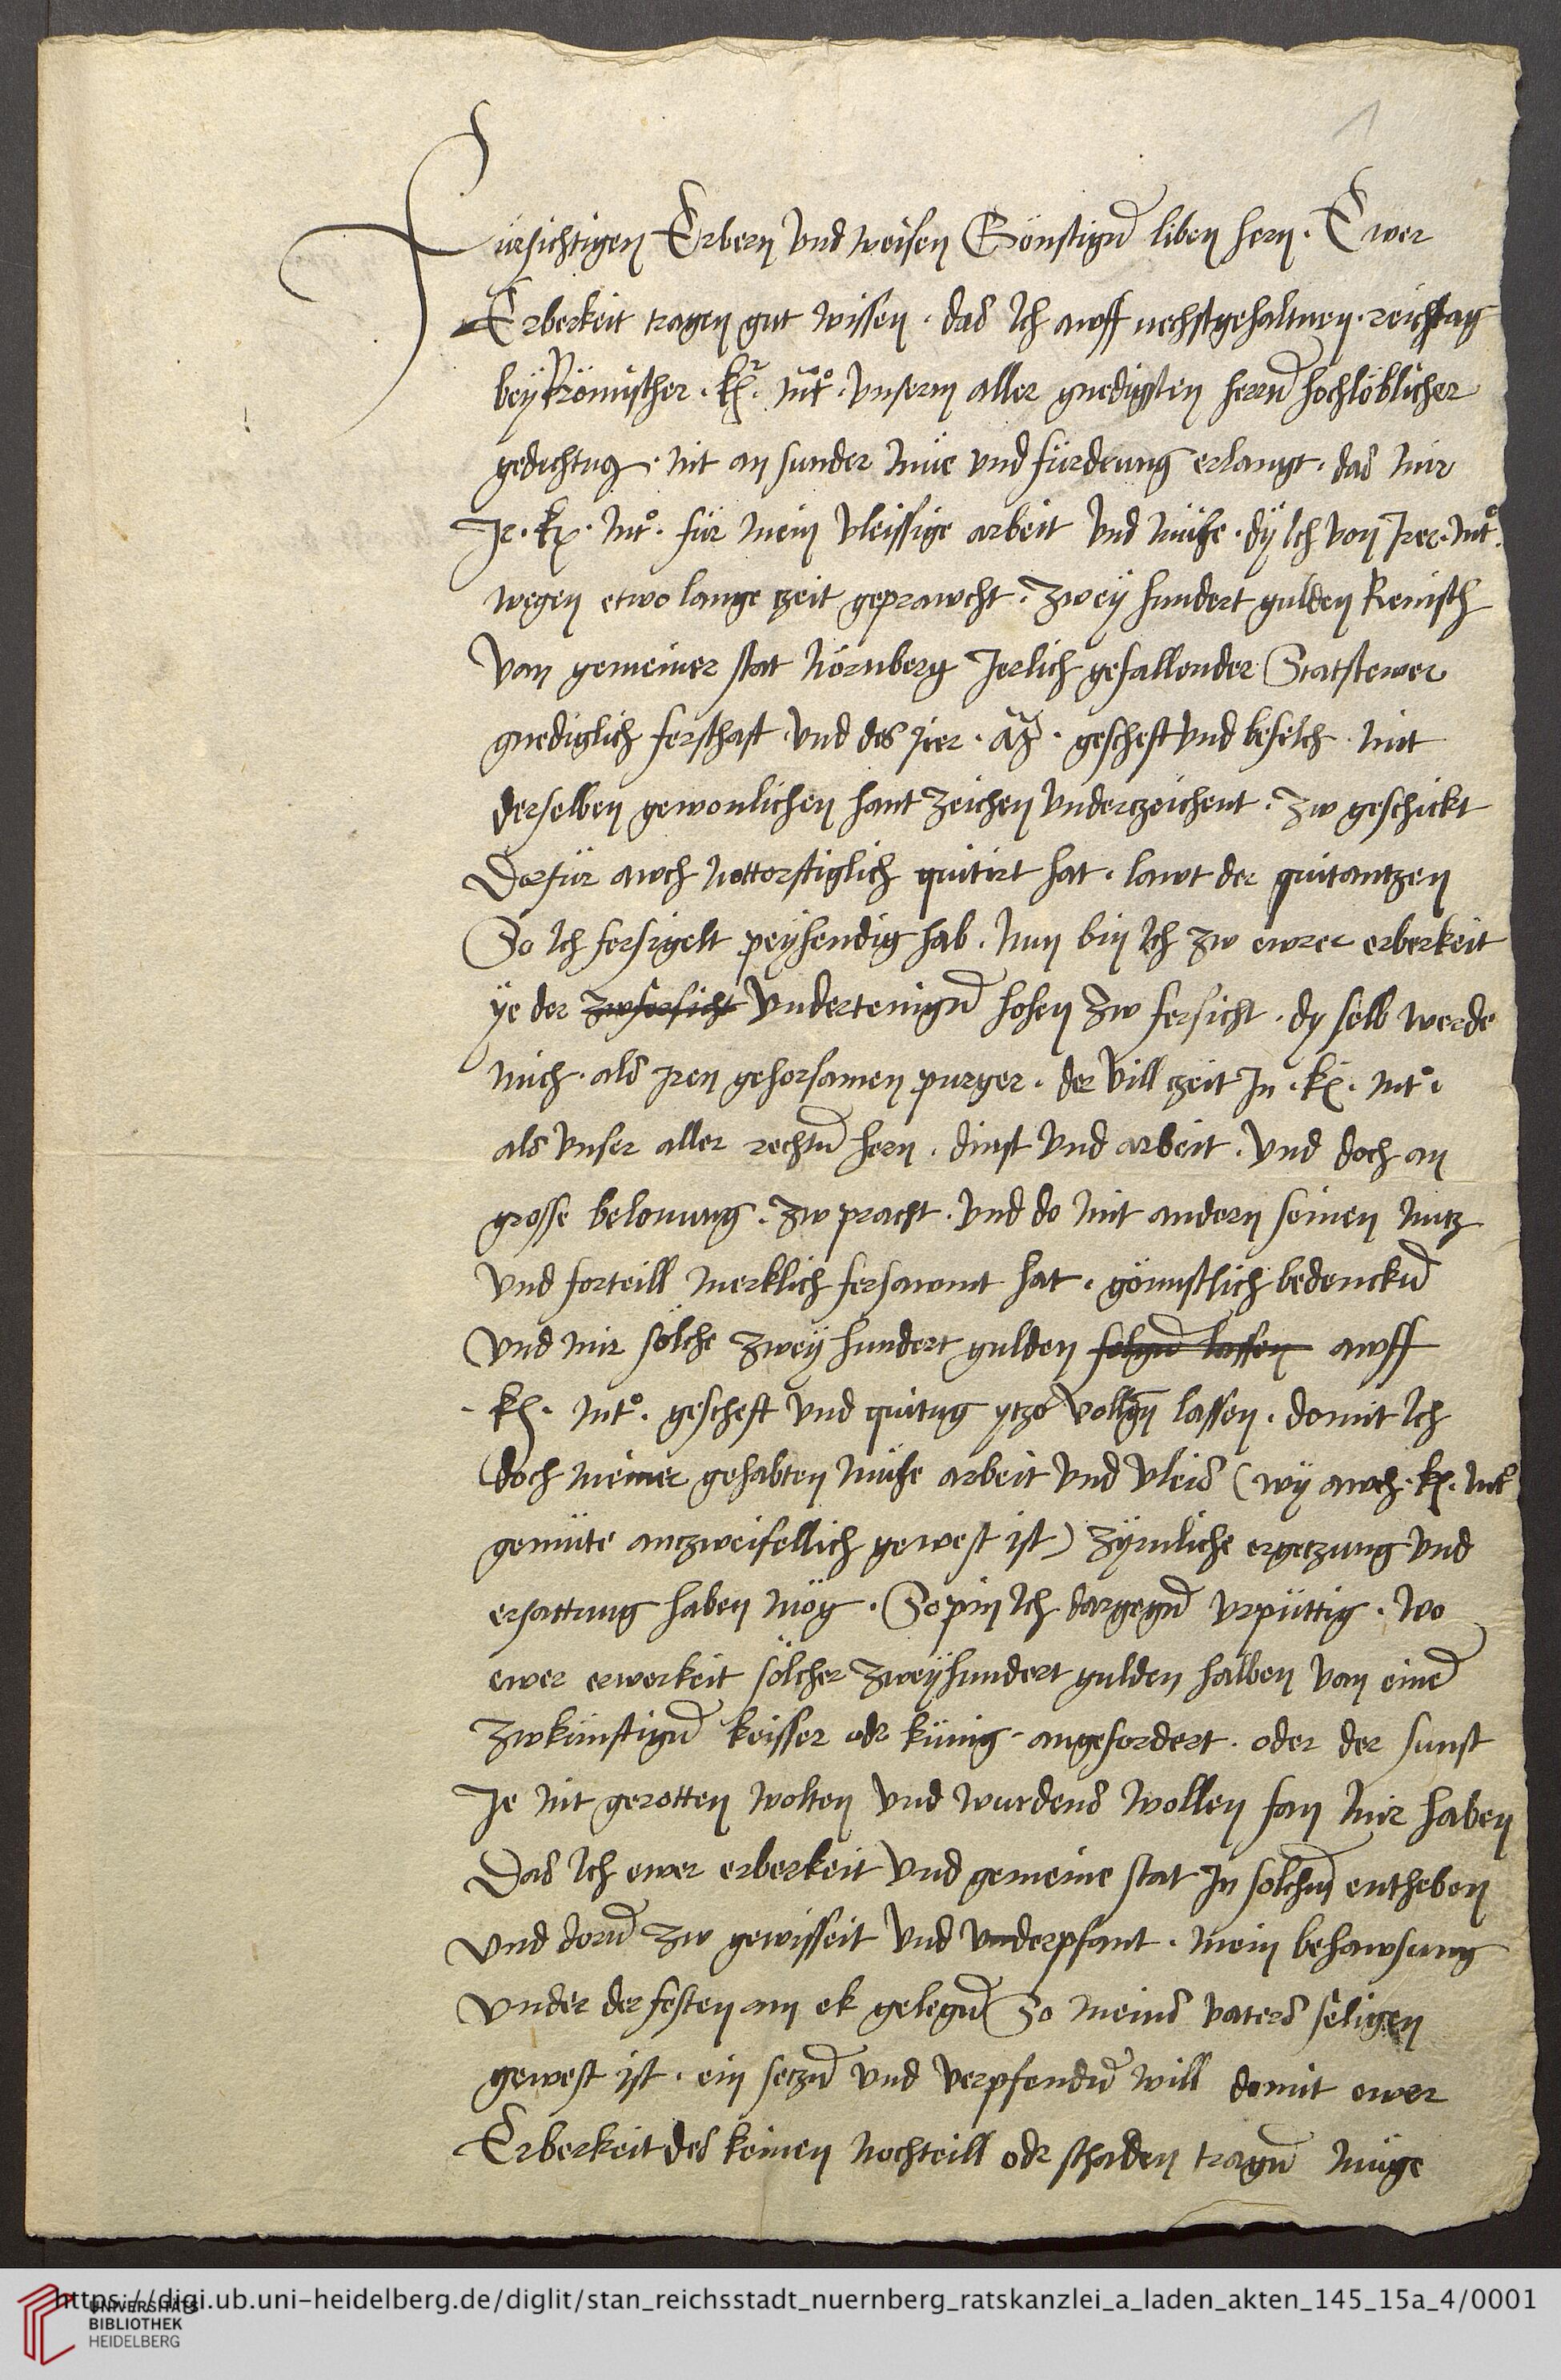 1
Fürsichtigen Erbern und weisen Gönstigen liben hern. Ewer
Erberkeit tragen gut wissen. das Ich awff nechstgehaltnen. reichstag
beÿ Römischer. kr. mt. unserm aller gnedigsten herrn hochlöblicher
gedechtnus. nit an sunder müe und fürderung erlangt. das mir
Ir. kr. mt. für mein vleissige arbeit und mühe. dÿ Ich von Irer. mt.
wegen etwo lange czeit geprawcht. Zweÿ hundert gulden Reinisch
van gemeiner stat Nörnberg Jerlich gefallender Statstewer
gnediglich ferschaft. und des irer. geschefft und befelch. mit
derselben gewonlichen hant Zeichen underczeichent. Zw geschickt
Dorfür awch nottorftiglich quitirt hat. lawt der quitantzen
So Ich fersigelt peÿhendig hab. Nun bin Ich zw ewrer erberkeit
ÿe der zwfersicht undertenigen hohen zw fersicht. dy selb werde
mich. als Iren gehorsamen purger. der vill czeit In. kr. mt.
als unser aller rechten hern. dinst und arbeit. und doch an
grosse belonung. zw pracht. und do mit andern seinen nutz
und forteill merklich fersawmt hat. gönnstlich bedencken
und mir sölche zweÿ hundert gulden folgen lassen awff
kr. mt. gescheft und quitung yczo volgen lassen. domit Ich
doch meiner gehabten mühe arbeit und vleis (wÿ awch. kr. mt.
gemüte anczweifellich gewest ist) zÿmliche ergeczung und
ersattung haben mög. So pin Ich dargegen urpüttig. wo
ewer erwerkeit sölcher zweÿhundert gulden halben van einem
zwkünftigen keisser odr künig. angefordert. oder der sunst
Je nit gerotten wolten und wurdens wollen fan mir haben
Das Ich ewer erberkeit und gemeine stat In solchem entheben
und dorum zw gewisseit und underpfant. mein behawsung
under der festen am ek gelegen So meins vaters seligen
gewest ist. ein seczen und verpfenden will domit ewer
Erberkeit des keinen nochteill odr schaden tragen müge
https://digi.ub.uni-heidelberg.de/diglit/stan_reichsstadt_nuernberg_ratskanzlei_a_laden_akten_145_15a_4/0001
UNIVERSITÄTS
BIBLIOTHEK
HEIDELBERG